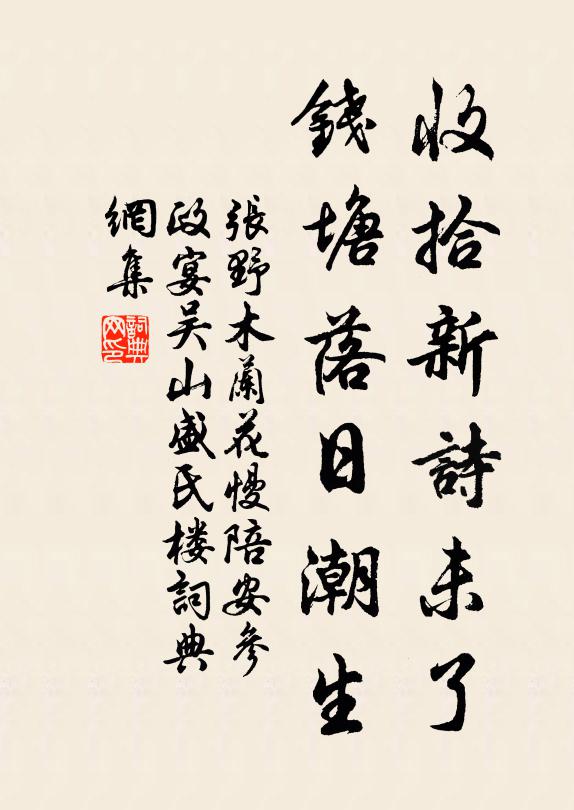 收拾新詩未了
錢塘落日潮生
張野木蘭花慢陪安參
政宴吴山盛氏楼詞典
網集
詞典
网印